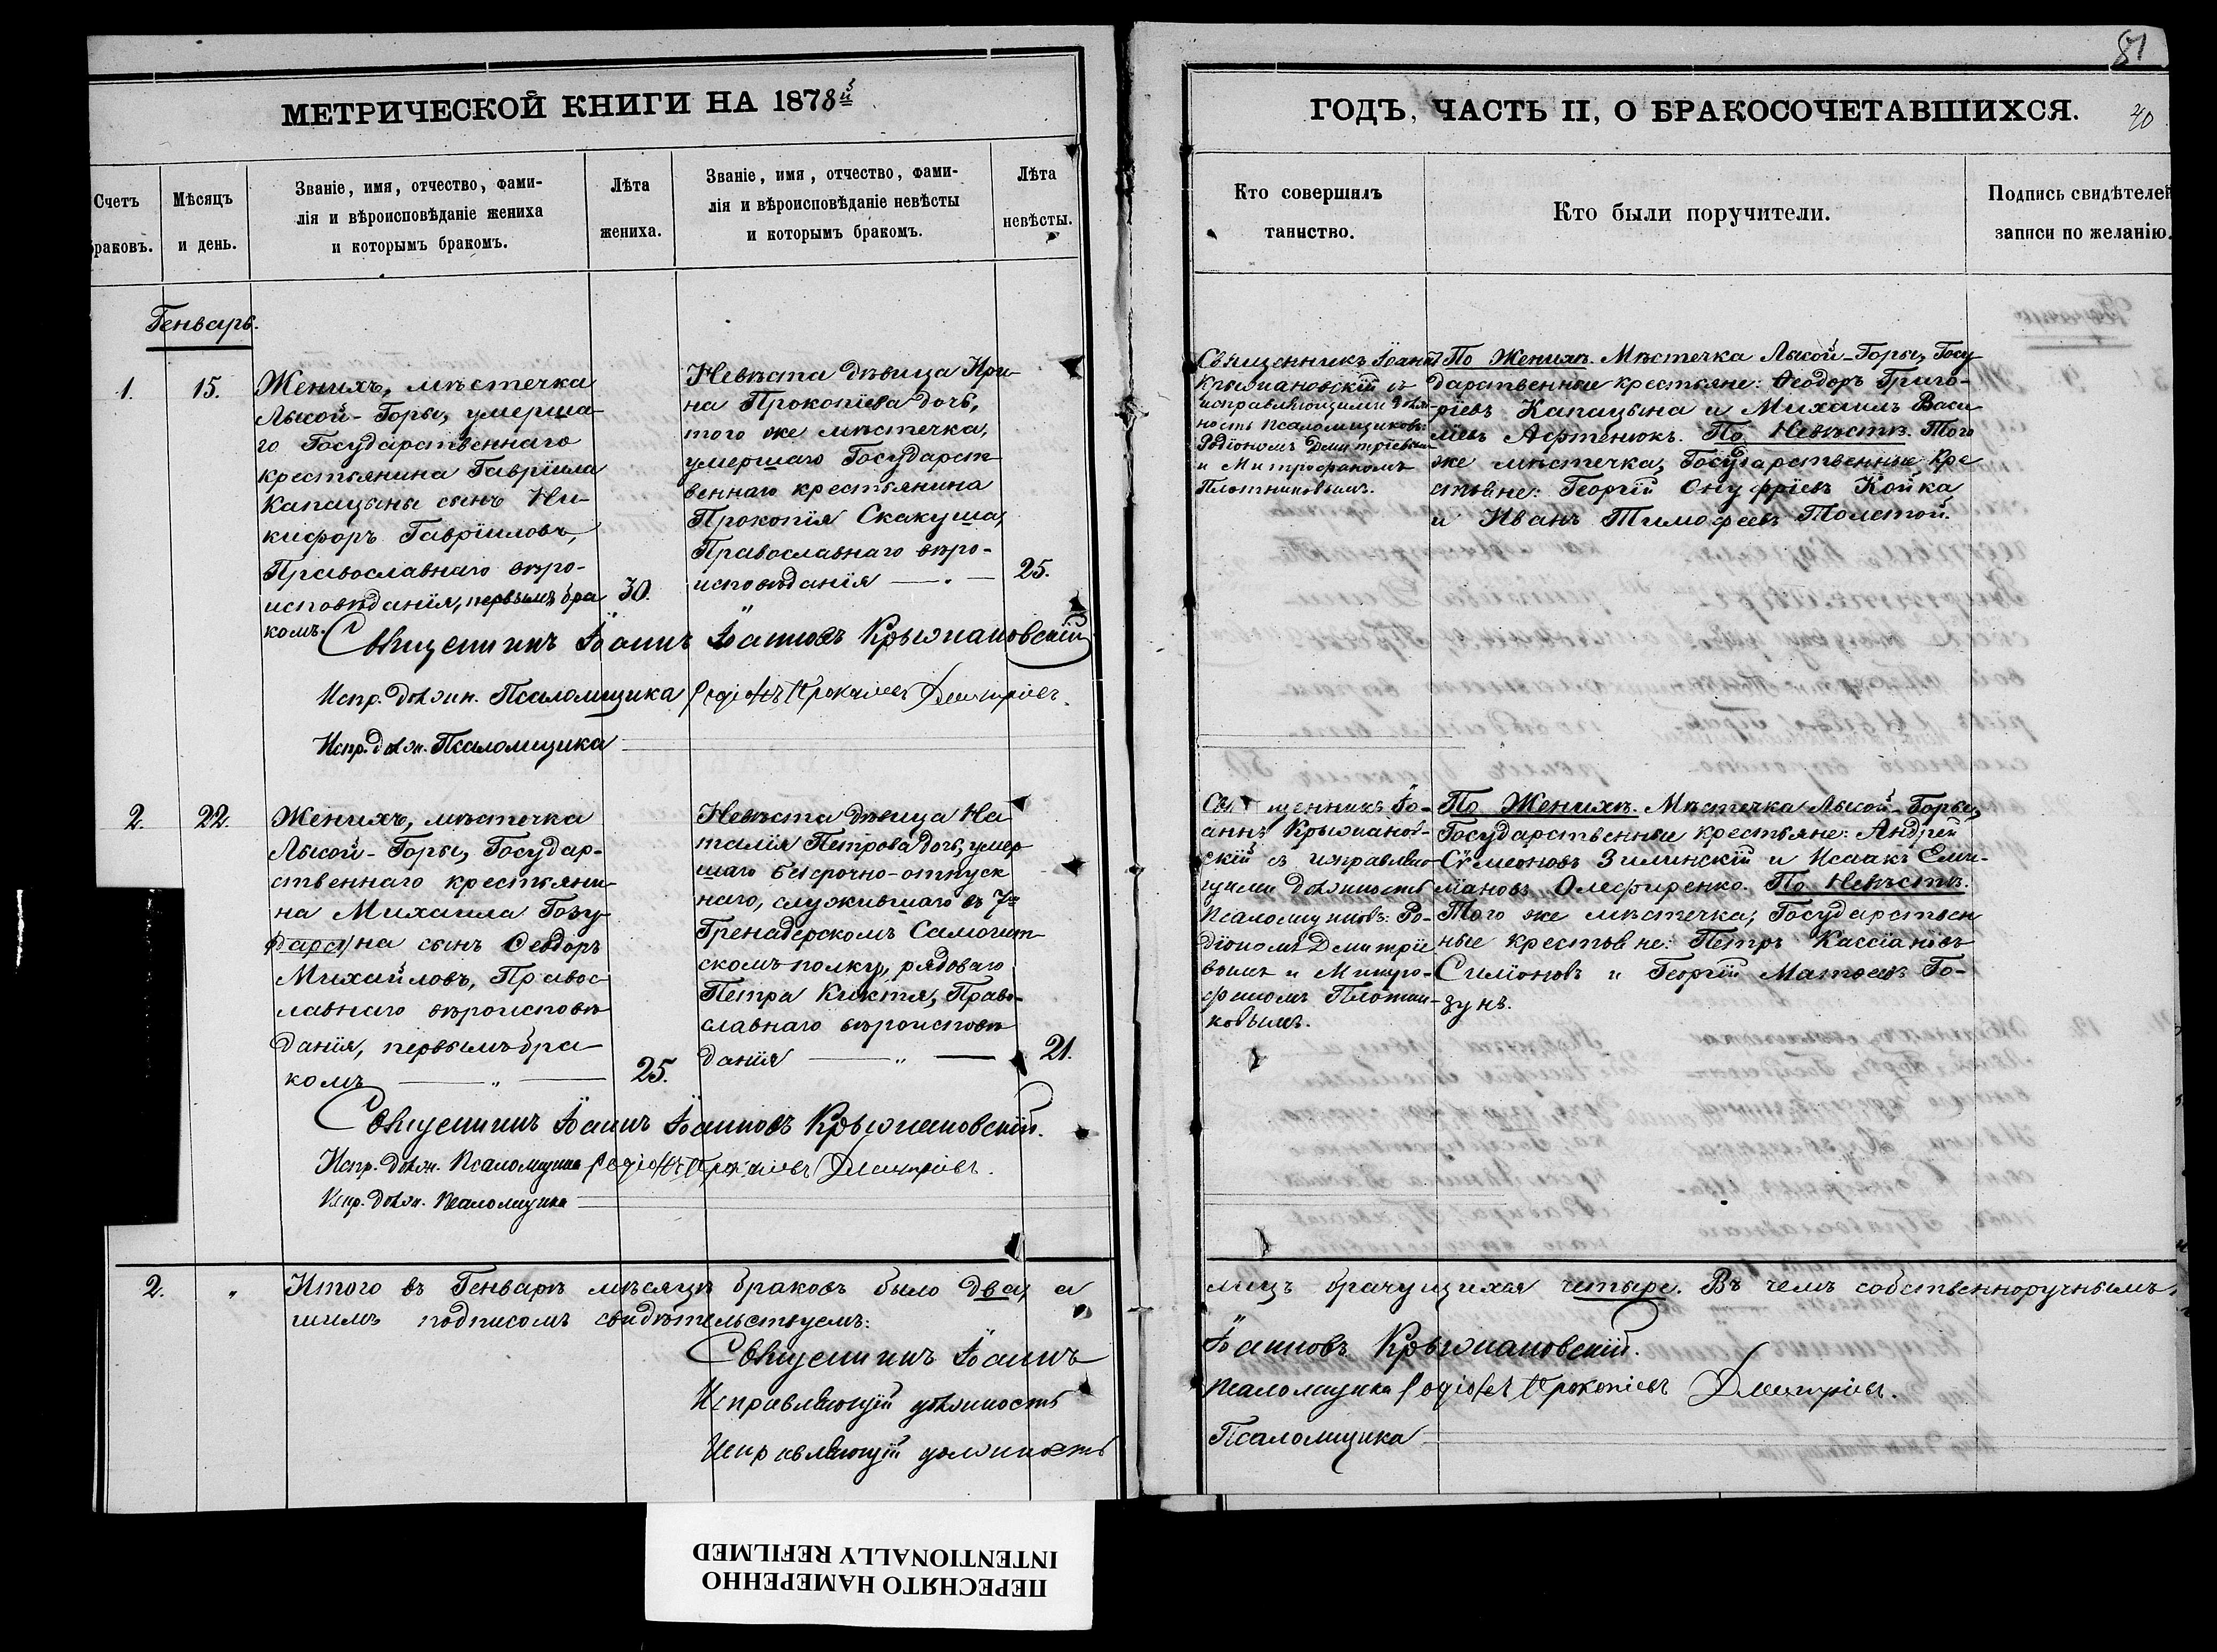 81
МЕТРИЧЕСКОЙ КНИГИ НА 1878й
ГОДЪ, ЧАСТЬ II, О БРАКОСОЧЕТАВШИХСЯ.
40
Счетъ
браковъ.
Мѣсяцъ
и день.
Званіе, имя, отчество, фами-
лія и вѣроисповѣданіе жениха
и которымъ бракомъ.
Лѣта
жениха.
Званіе, имя, отчество, фами-
лія и вѣроисповѣданіе невѣсты
и которымъ бракомъ.
Лѣта
невѣсты.
Кто совершалъ
таинство.
Кто были поручители.
Подпись свидѣтелей
записи по желанію.
Генварь.
1.
15.
Женихъ, мѣстечка
Лысой-Горы, умерша-
го Государственнаго
крестьянина Гавріила
Капацыны сынъ Ни-
кифоръ Гавріиловъ,
Православнаго вѣро-
исповѣданія, первымъ бра
комъ.
30.
Невѣста дѣвица Ири-
на Прокопіева дочь,
того же мѣстечка,
умершаго Государст
веннаго крестьянина
Прокопія Скакуша,
Православнаго вѣро-
исповѣданія — „ —
25.
Священникъ Іоаннъ
Крыжановскій съ
исправляющими долж-
ность псаломщиковъ:
Родіономъ Дмитріевым
и Митрофаномъ
Плотниковымъ.
По Женихѣ. Мѣстечка Лысой-Горы, Госу
дарственные крестьяне: Ѳеодоръ Григо-
ріевъ Капацына и Михаилъ Васи
ліевъ Афтенюкъ. По Невѣстѣ. Того
же мѣстечка, Государственные Кре
стьяне: Георгій Онуфріевъ Койка
и Иванъ Тимофеевъ Толстой.
Священникъ Іоаннъ Іоанновъ Крыжановскій
Испр. должн. Псаломщика Родіонъ Прокопіевъ Дмитріевъ.
Испр. должн. Псаломщика
2.
22.
Женихъ, мѣстечка
Лысой-Горы, Государ-
ственнаго крестьяни-
на Михаила Госу
даря) на сынъ Ѳеодоръ
Михайловъ, Правос
лавнаго вѣроисповѣ
данія, первымъ бра
комъ — „ —
25.
Невѣста дѣвица На
талія Петрова дочь, умер
шаго безсрочно-отпуск
наго, служившаго въ 7м
Гренадерскомъ Самогит
скомъ полку, рядоваго
Петра Киктя, Право-
славнаго вѣроисповѣ
данія — „ —
21.
Священникъ Іо-
аннъ Крыжанов-
скій съ исправляю
щими должность
псаломщиковъ: Ро-
діономъ Дмитріе
вымъ и Митро-
фаномъ Плотни-
ковымъ.
По Женихѣ. Мѣстечка Лысой-Горы,
Государственные крестьяне: Андрей
Сѵмеоновъ Зилинскій и Исаакъ Еми-
ліановъ Олефиренко. По Невѣстѣ.
Того же мѣстечка, Государствен
ные крестьяне: Петръ Кассіановъ
Симіоновъ и Георгій Матѳеевъ Го-
зунъ.
Священникъ Іоаннъ Іоанновъ Крыжановскій.
Испр. должн. Псаломщика Родіонъ Прокопіевъ Дмитріевъ.
Испр. должн. Псаломщика
2.
„
Итого въ Генварѣ мѣсяцѣ браковъ было два, а
лицъ брачущихся четыре. Въ чемъ собственноручнымъ
шимъ подписомъ свидѣтельствуемъ:
Священникъ Іоаннъ
Іоанновъ Крыжановскій.
Исправляющій должность
Псаломщика Родіонъ Прокопіевъ Дмитріевъ.
Исправляющій должность
Псаломщика
ПЕРЕСНЯТО НАМЕРЕННО
INTENTIONALLY REFILMED